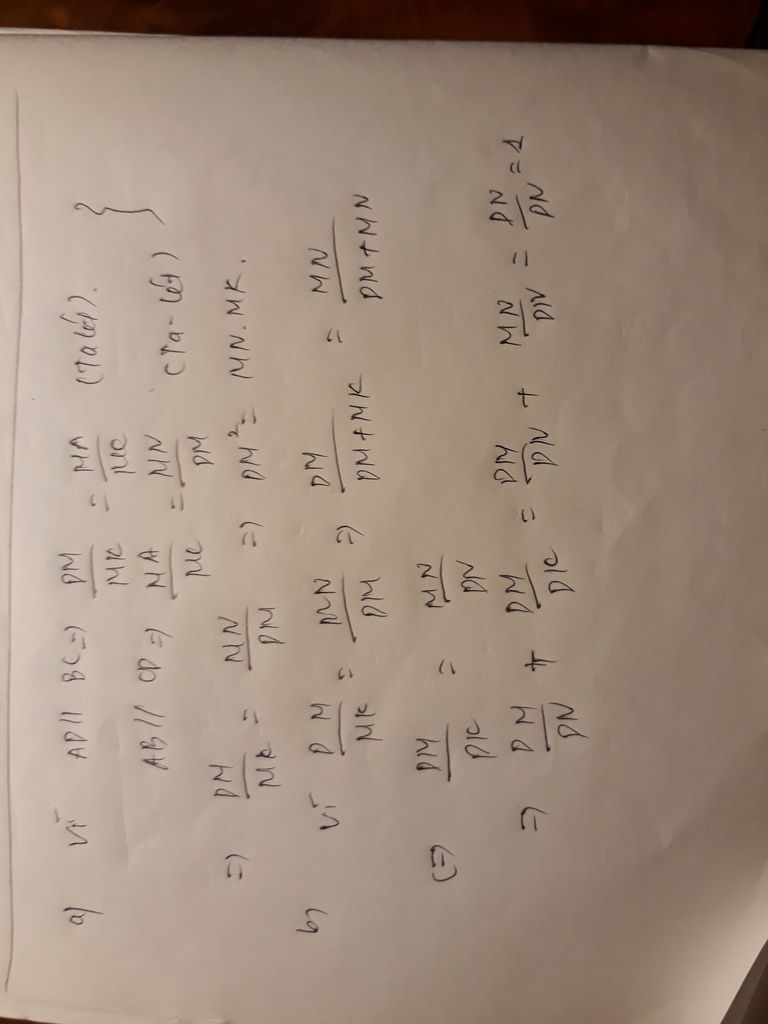 a) Vì AD // BC => DM/MK = MA/MC (Ta lét). }
AB // CD => MA/MC = MN/DM (Ta-lét)
=> DM/MK = MN/DM => DM² = MN.MK.
b) Vì DM/MK = MN/DM => DM/DM+MK = MN/DM+MN
(=) DM/DK = MN/DN
=> DM/DN + DM/DK = DM/DN + MN/DN = DN/DN = 1